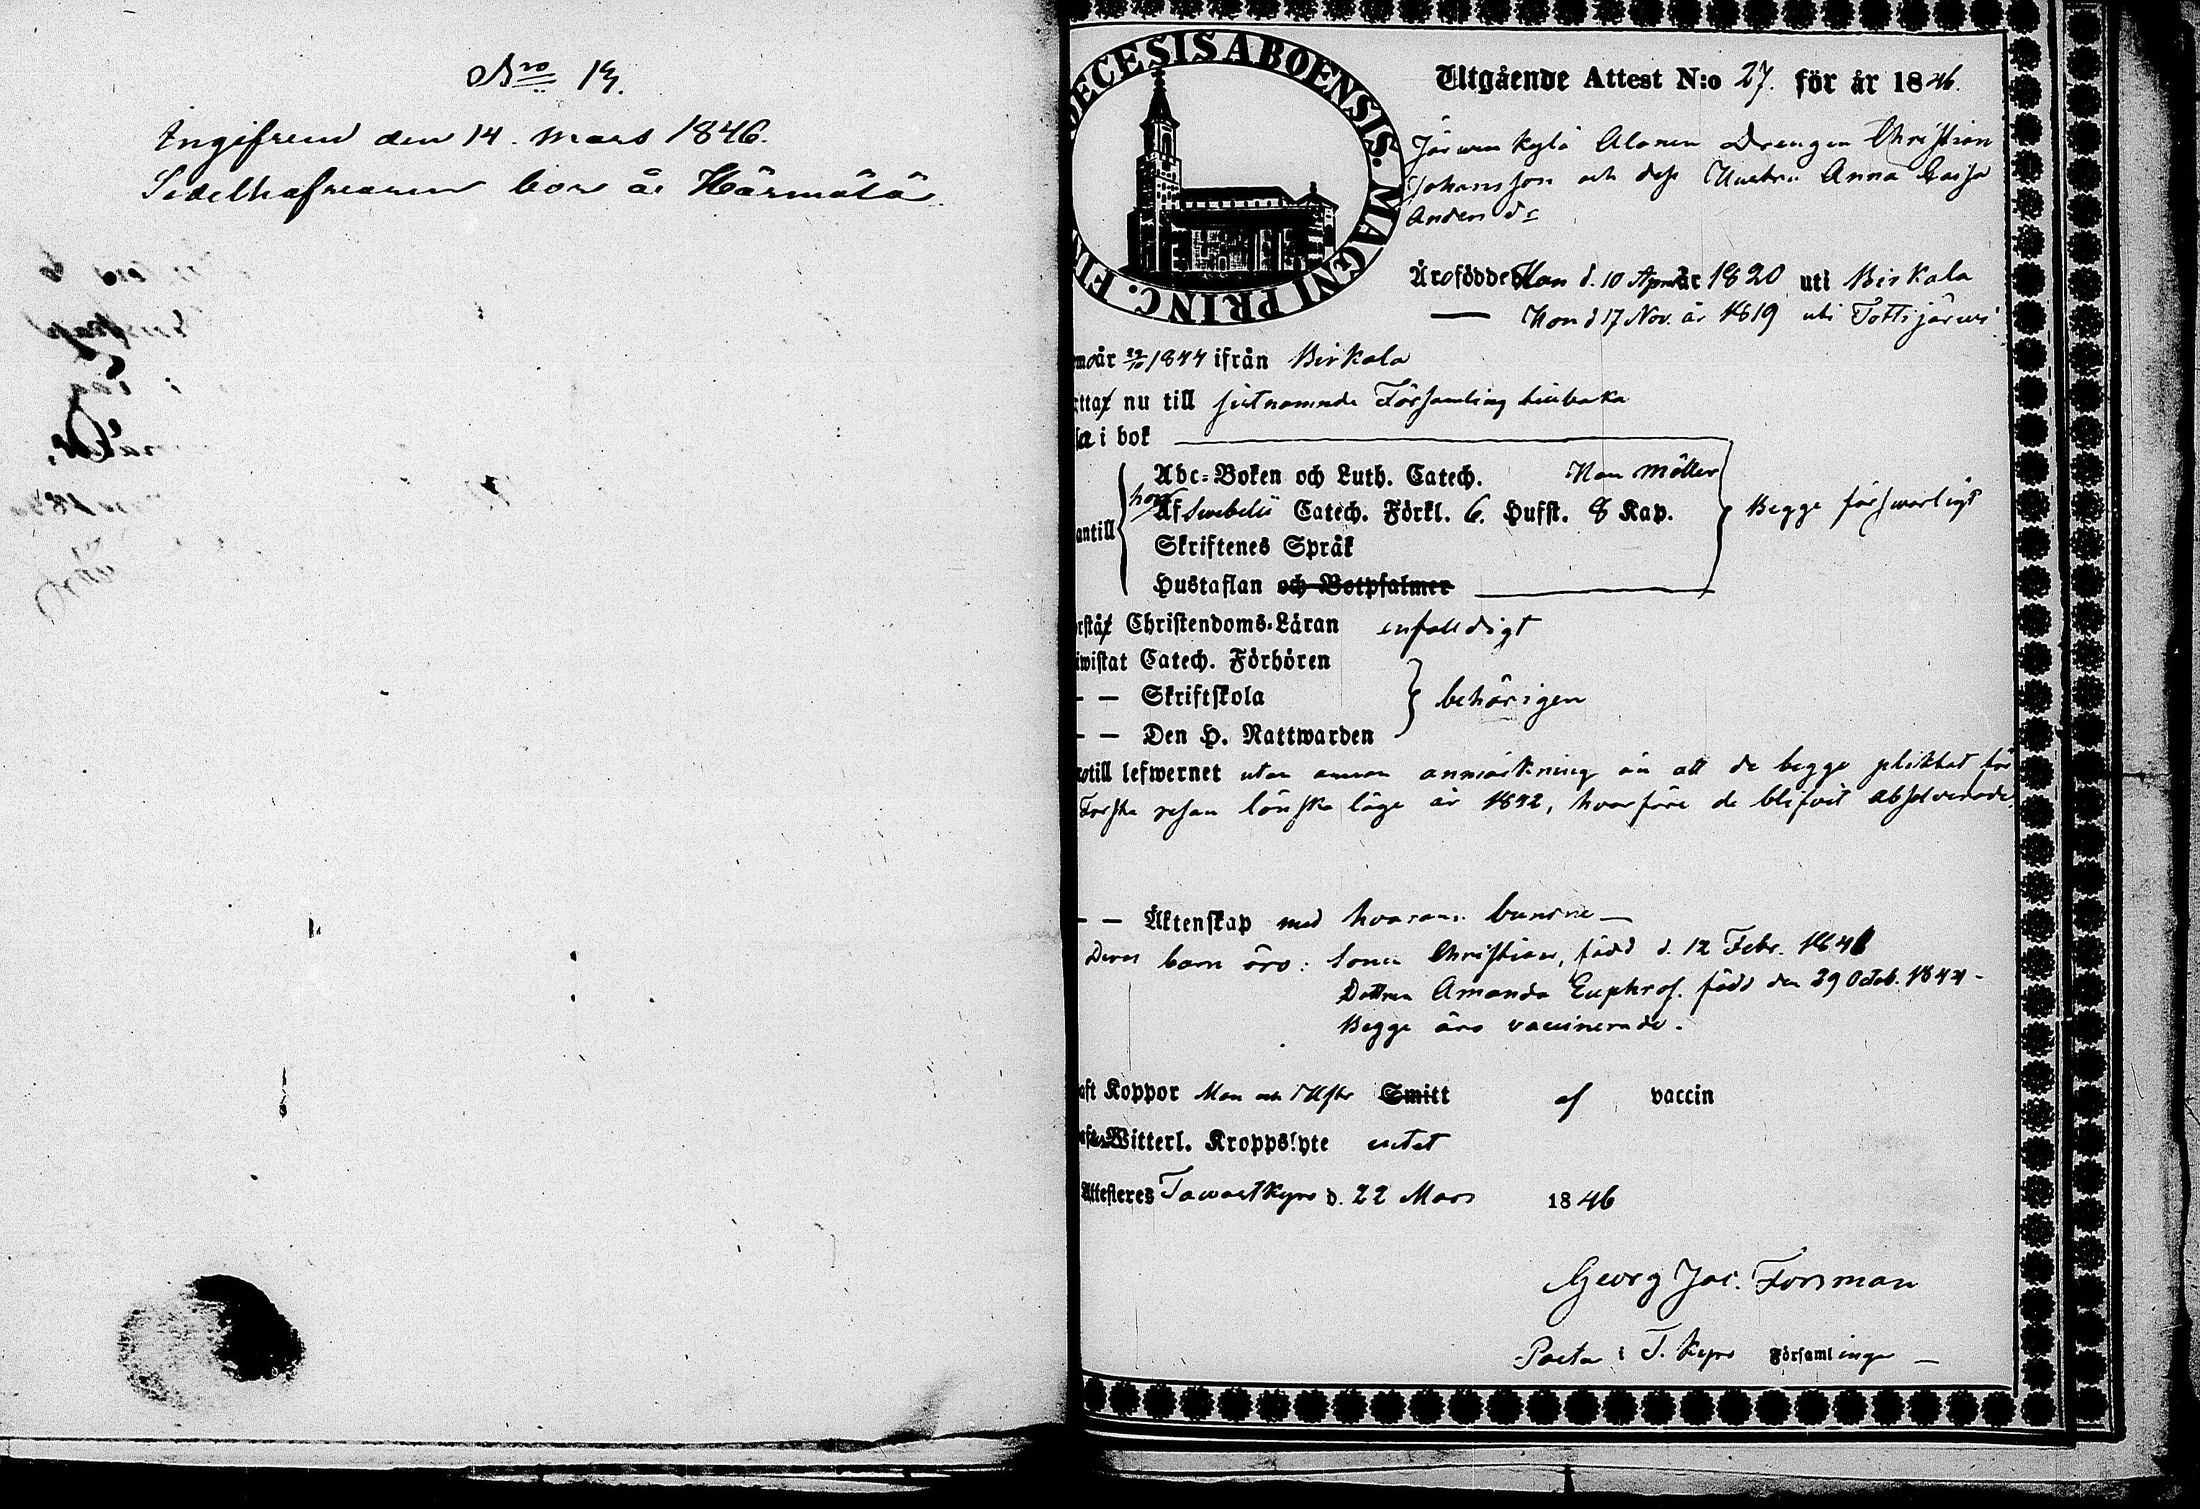 Nro 13.
Ingifven den 14. Mars 1846.
Sedelhafvaren bor å Härmälä
DIOECESIS ABOENSIS. MAGNI PRINC. FIN
Utgående Attest N:o 27. för år 1846.
Järwenkylä Alanen Drengen Christian
Johansson och dess Hustru Anna Caisa
Anders dr
Äro födde Han d. 10 April år 1820 uti Birkala
— Hon d 17 Nov. år 1819 uti Tottijärwi
år 22/10 1844 ifrån Birkala
nu till sistnämnde Församling tillbaka
i bok
Abc-Boken och Luth. Catech. Han Möller
hon Af Swebelii Catech. Förkl. 6. Hufst. 8 Kap. Begge försvarligt
antill
Skriftenes Språk
Hustaflan och Botpsalmer
Christendoms-Läran enfalldigt
wistat Catech. Förhören
— — Skriftskola behörigen
— — Den H. Nattwarden
till lefwernet utan annan anmärkning än att de begge pliktat för
Första resan lönska läge år 1842, hvarföre de blifvit absolverade.
— — Äktenskap med hvarann bundne —
Deras barn äro: Sonen Christian, född d. 12 Febr. 1841
Dottren Amanda Euphros. född den 29 Octob. 1844 -
Begge äro vaccinerade.
aft Koppor Man och Hustr Smitt af vaccin
Witterl. Kroppslyte intet
Attesteres Tawastkyro d. 22 Mars 1846
Georg Jac. Forsman
Pastor i T. Kyro Församlingar —